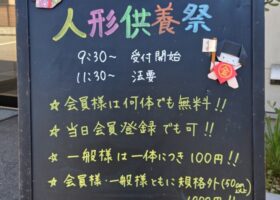 人形供養祭
9:30～ 受付開始
11:30～ 法要
☆会員様は何体でも無料!!
☆当日会員登録でも可!!
☆一般様は一体につき100円!!
☆会員様・一般様ともに規格外(50cm以上